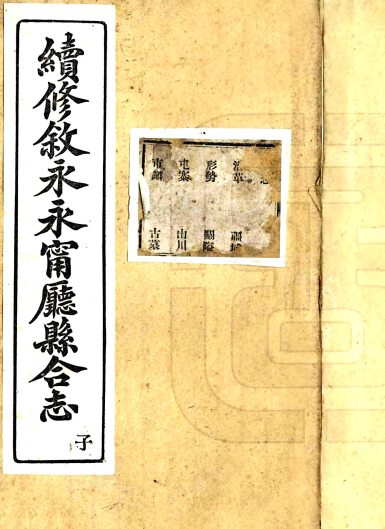 續修敘永永甯廳縣合志
子
沿革 疆域
形勢 關隘
屯寨 山川
市鎮 古蹟